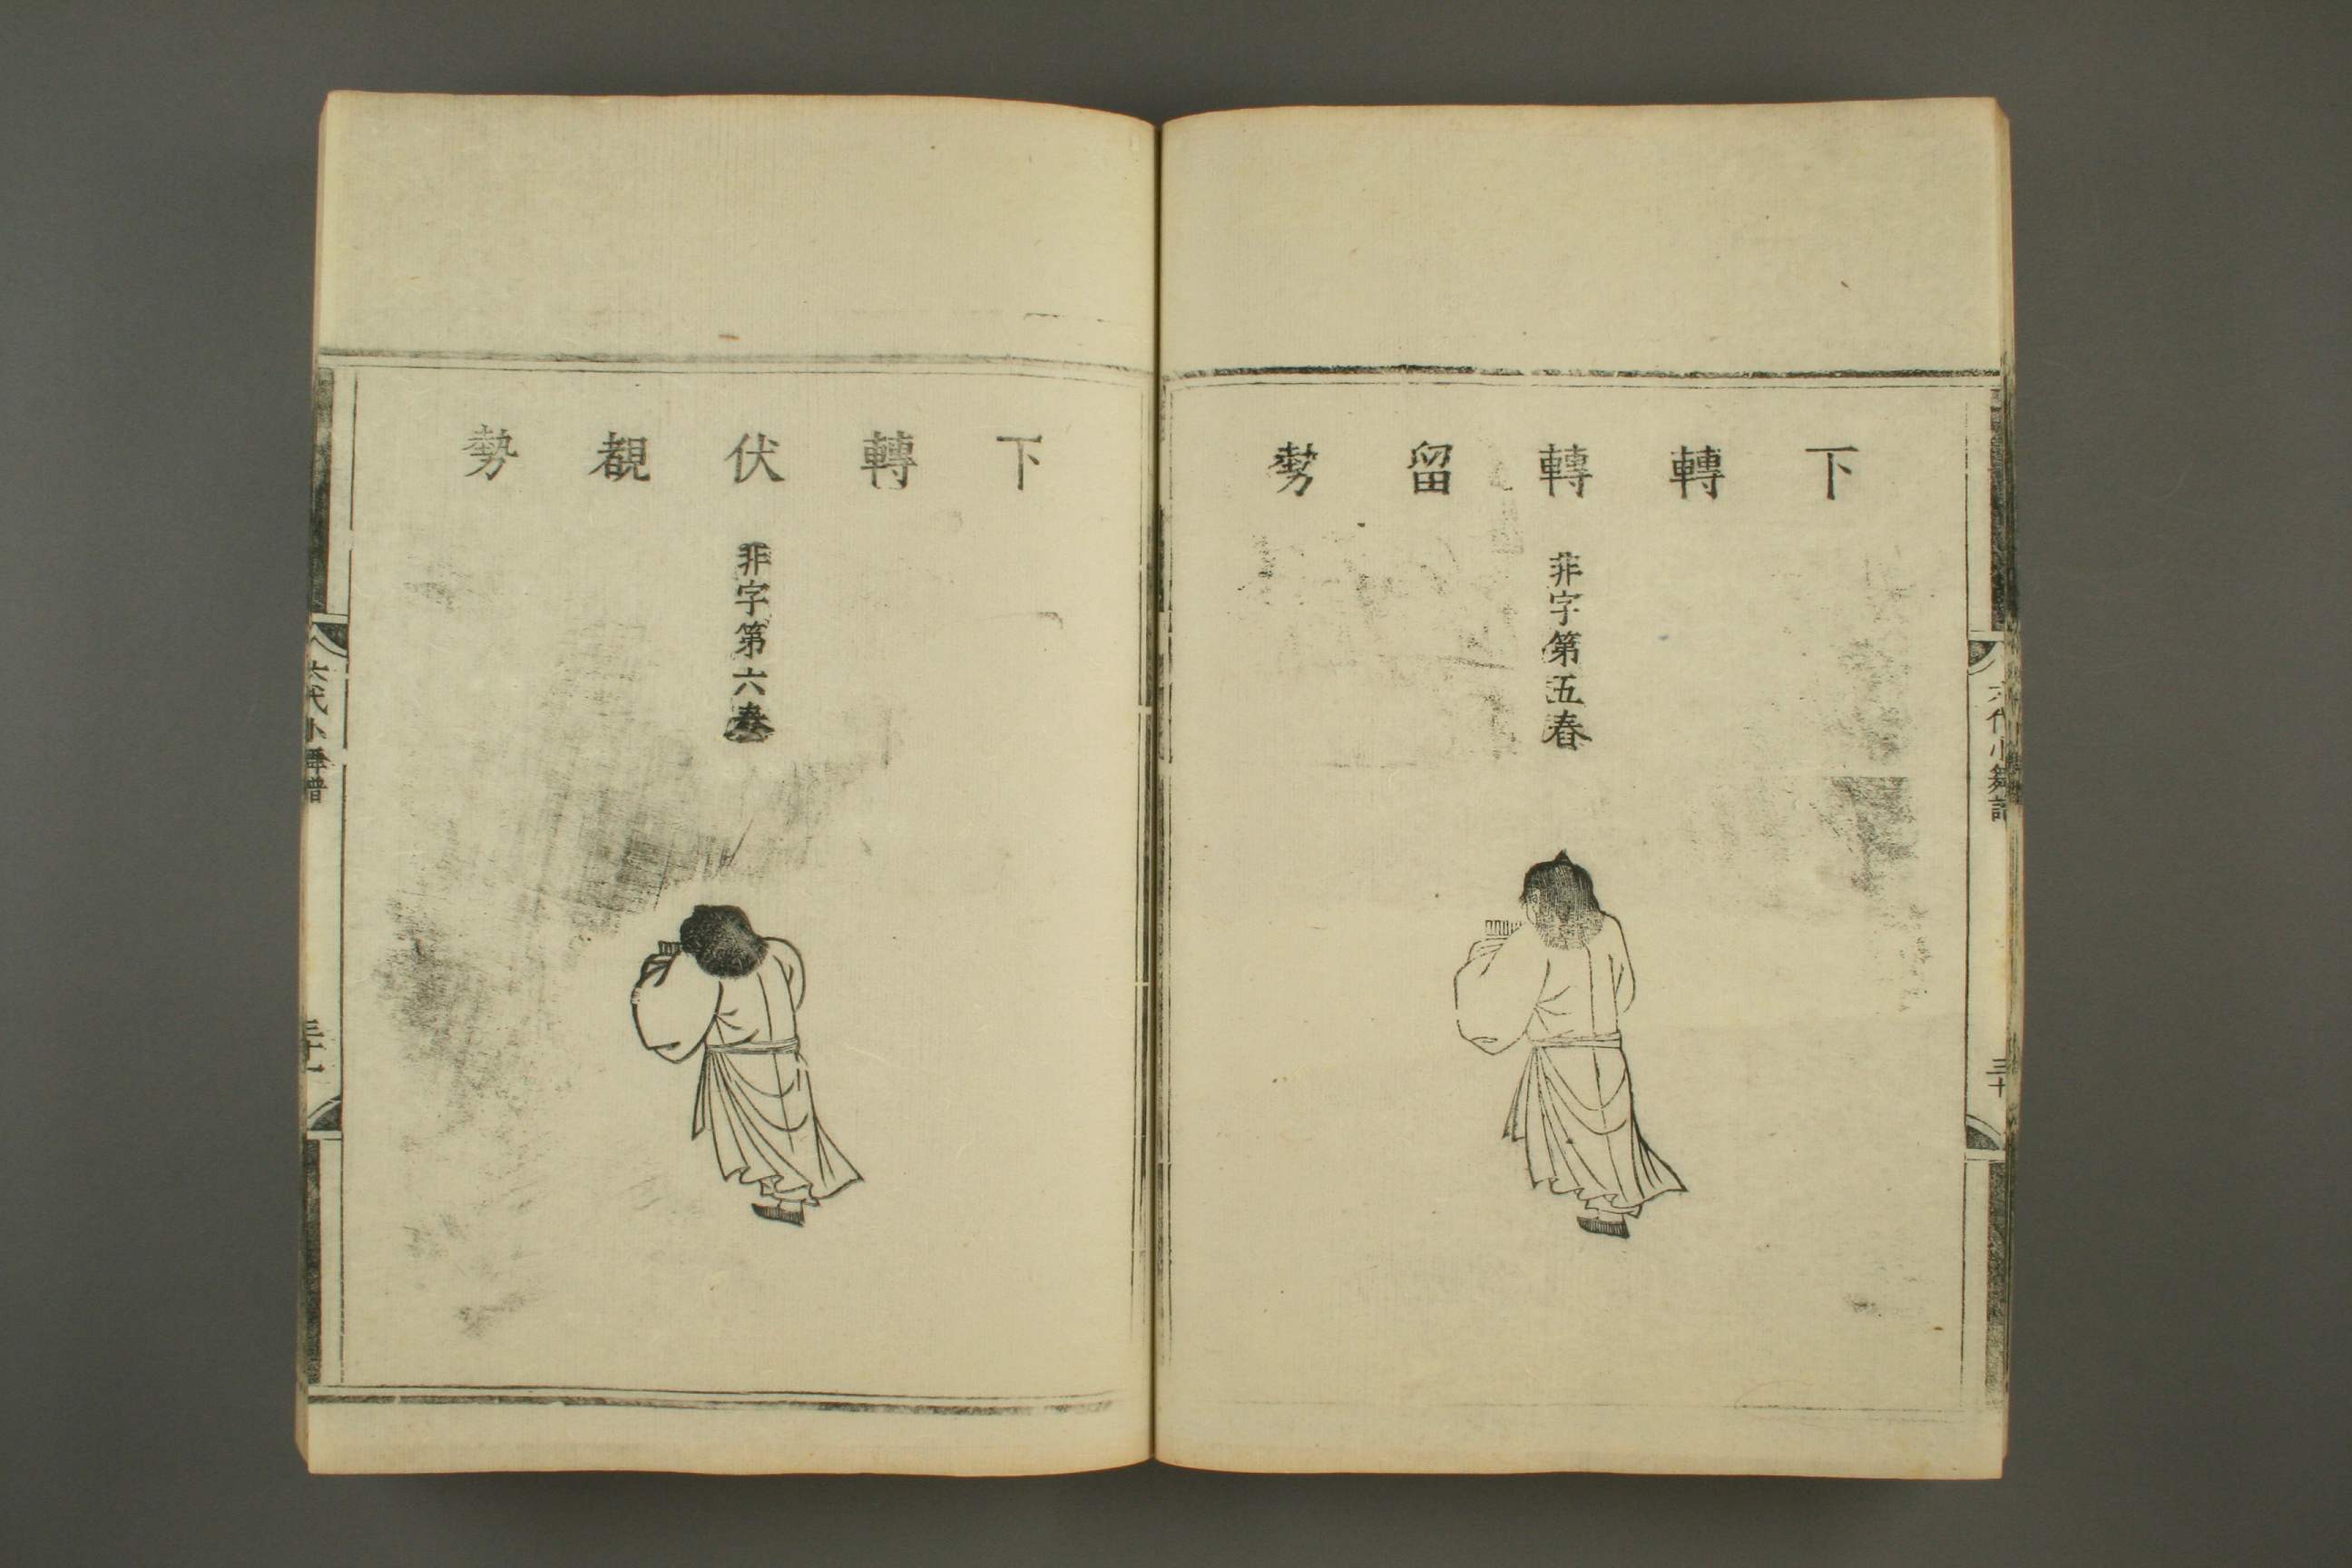 下轉轉留勢
非字第五舂
六代小舞譜
三十
下轉伏覩勢
非字第六舂
六代小舞譜
三十一